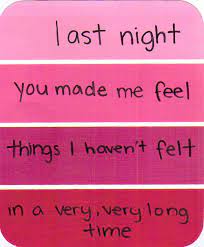 last night
you made me feel
things I haven't felt
in a very, very long
time